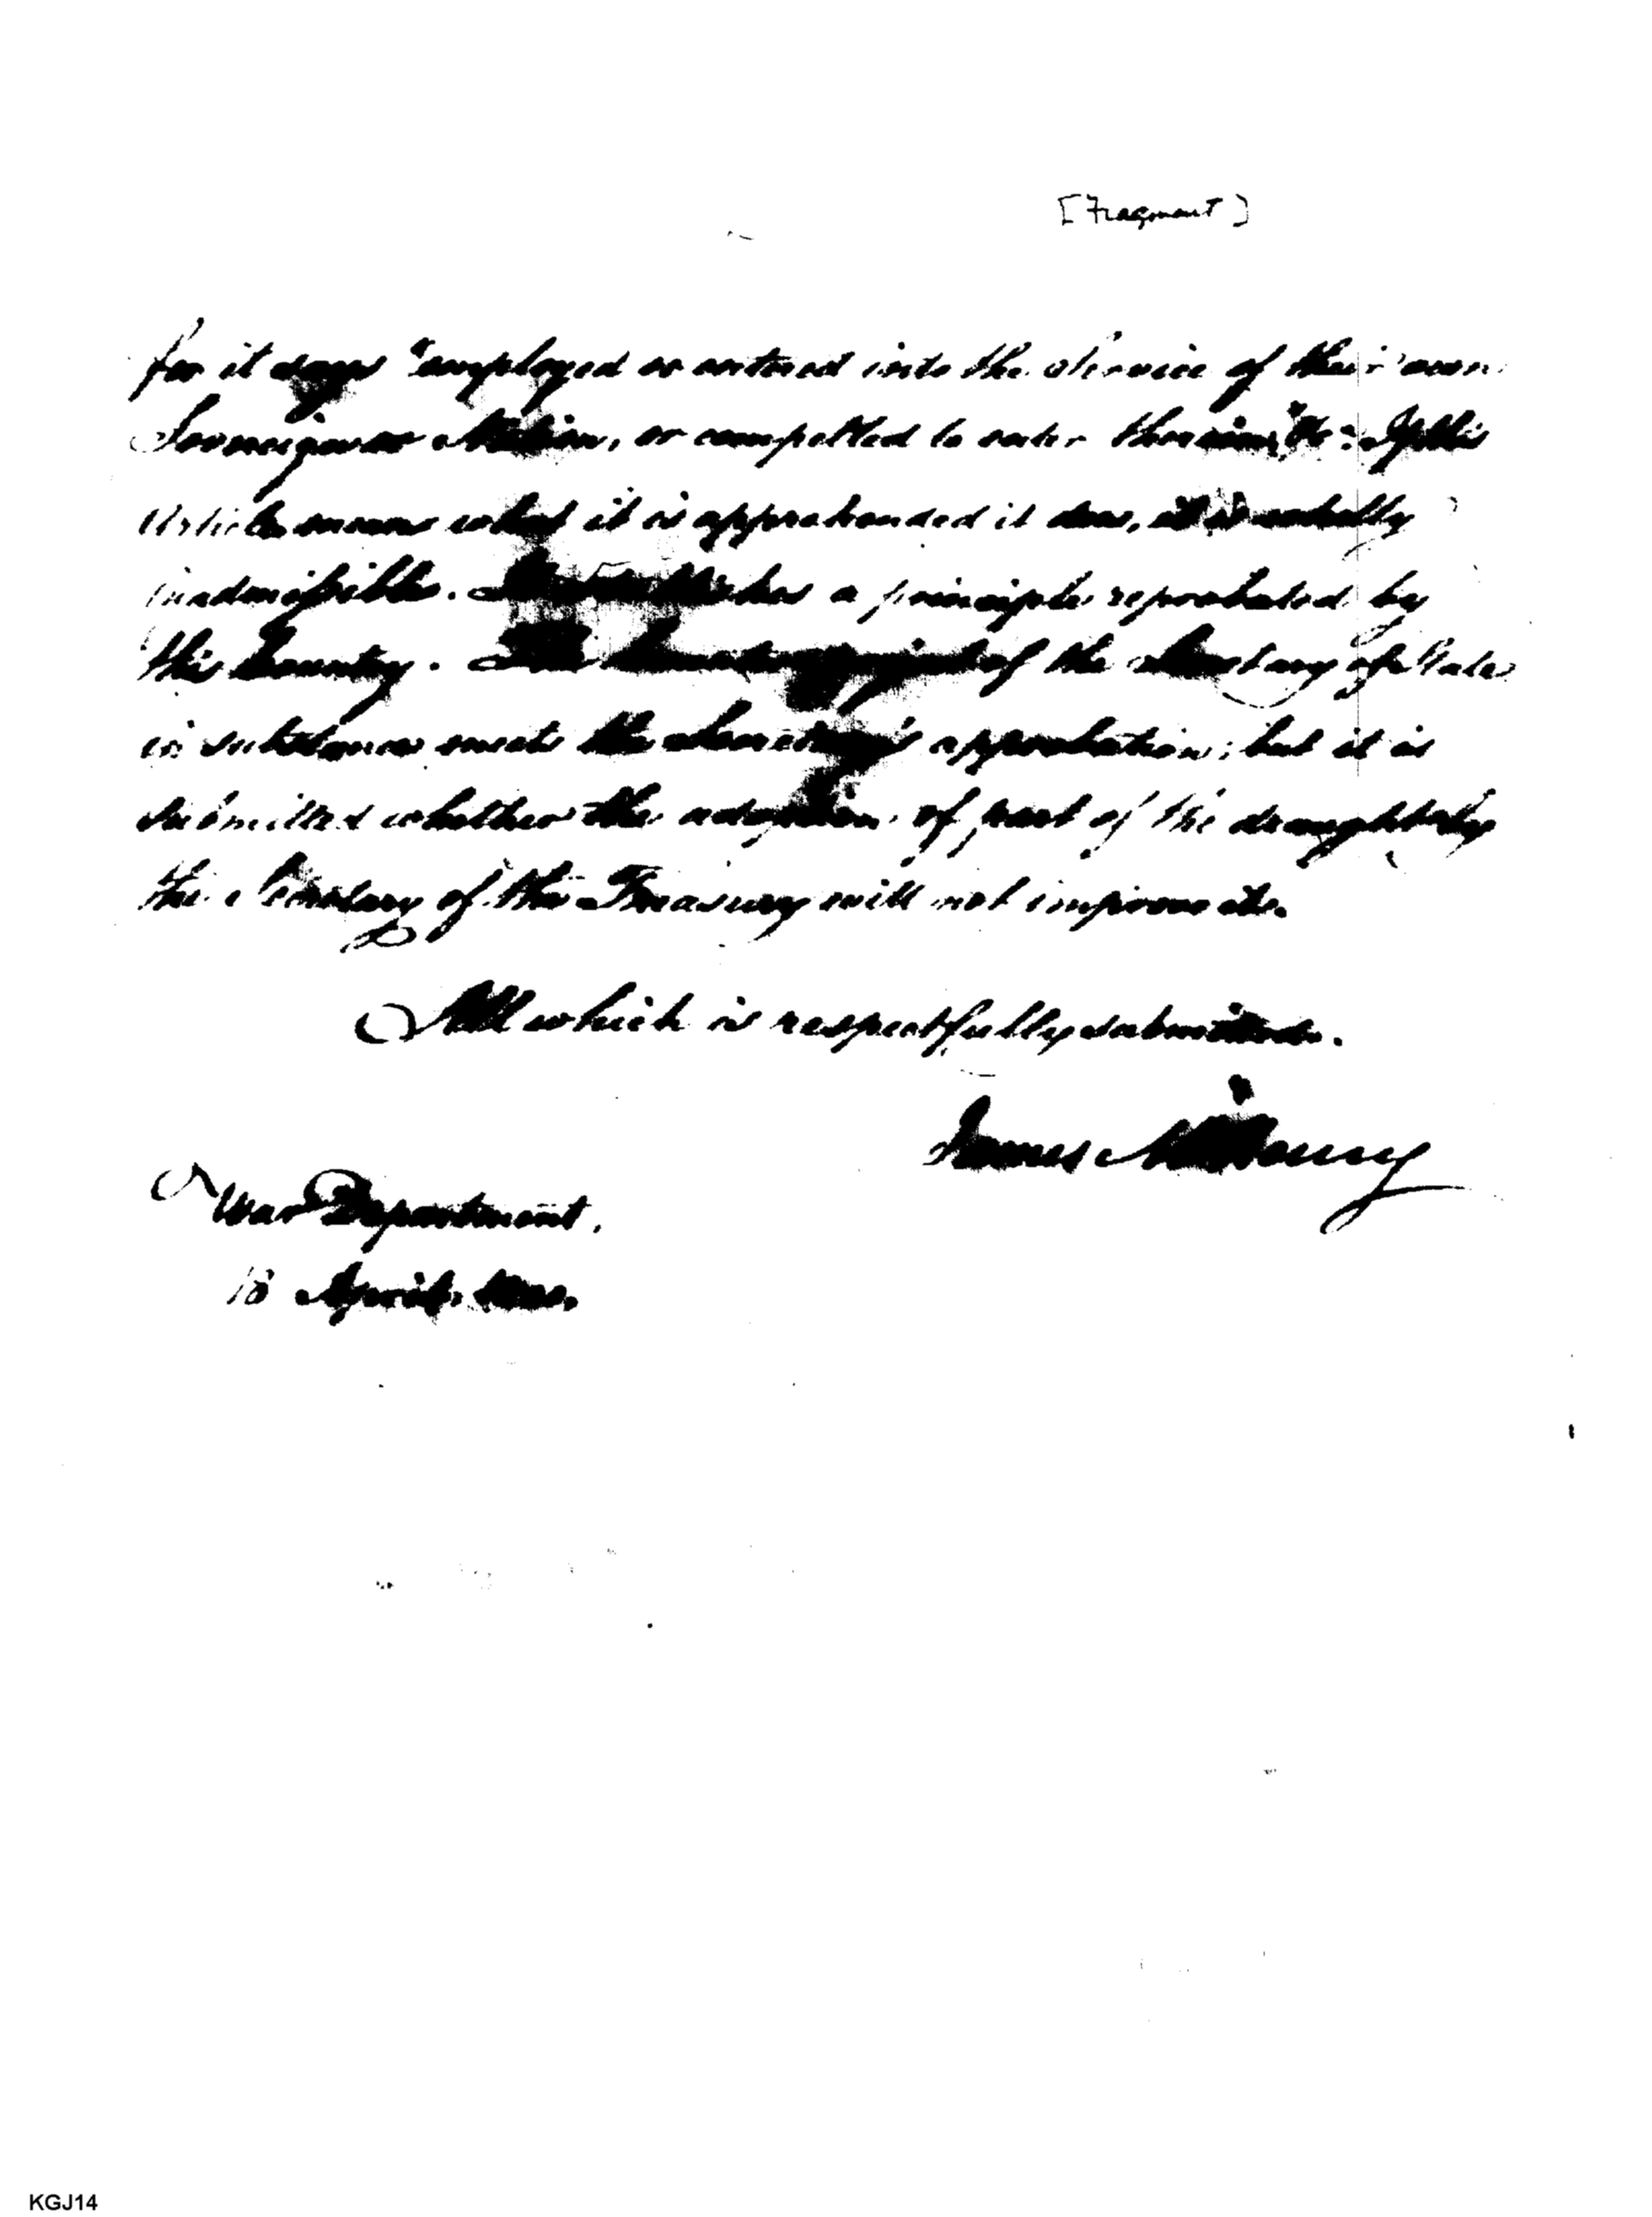 [Fragment]
for it says "employed or entered into the Service of their own
Sovereign or Nation, or compelled to enter therein, &c: If this
Article means what it is apprehended it does, it is wholly
inadmissible. a principle reprobated by
this Country. The of the Secretary of State
in substance meets the Secretary's approbation; but it is
submitted whether the adoption of part of the draught by
the Secretary of the Treasury will not improve it.
All which is respectfully submitted.
James McHenry
War Department,
18 April, 1800.
KGJ14